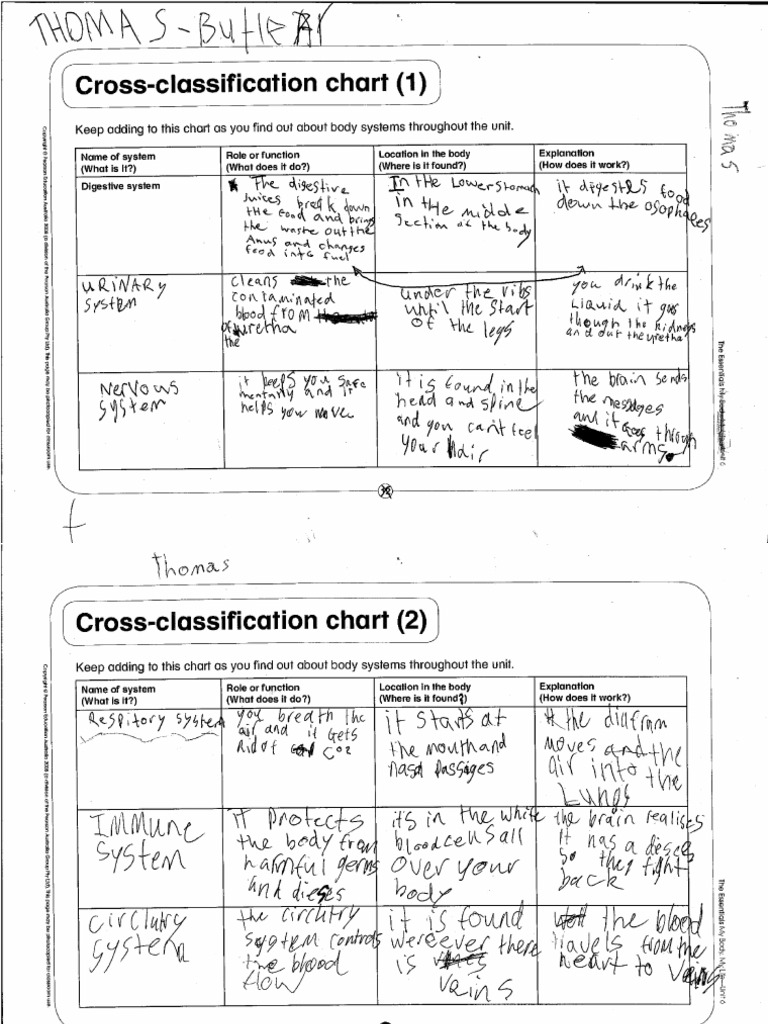 THOMAS-Butler
Cross-classification chart (1)
Thomas
Keep adding to this chart as you find out about body systems throughout the unit.
Name of system
(What is it?)
Role or function
(What does it do?)
Location in the body
(Where is it found?)
Explanation
(How does it work?)
Digestive system
The digestive
Juices break down
the food and bring
the waste out the
Anus and changes
food into fuel
In the Lower stomach
in the middle
section of the body
it digests food
down the osophagees
URINARY
System
cleans the
contaminated
blood FROM
of uretha
the
under the ribs
until the start
of the legs
you drink the
Liquid it goes
though the kidneys
and out the uretha
Nervous
System
it keeps you safe
mentally and it
helps you move
it is found in the
head and spine
and you can't feel
your hair
the brain sends
the messages
and it goes through
arms.
32
The Essentials My Body, My Life—Unit 6
t
Thomas
Cross-classification chart (2)
Keep adding to this chart as you find out about body systems throughout the unit.
Name of system
(What is it?)
Role or function
(What does it do?)
Location in the body
(Where is it found?)
Explanation
(How does it work?)
Respitory system
you breath the
air and it Gets
Rid of CO2
it starts at
the mouth and
nasa Passages
the diafram
moves and the
air into the
Lungs
IMMUNE
System
it Protects
the body from
harmful germs
and
its in the white
blood cells all
over your
body
the brain realises
it has a
so they fight
back
Circlutry
System
the circlutry
system controls
the blood
flow
it is found
werever there
is
vains
the blood
travels from the
heart to vains
The Essentials My Body, My Life—Unit 6